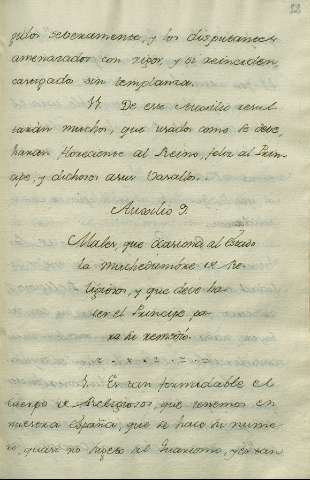 52
gidos severamente, y los disputantes
amenazados con rigor, y si reinciden,
castigados sin templanza.
De este Auxilio resul
tarán muchos, que usados como se debe,
harán floreciente al Reino, feliz al Prin-
cipe, y dichosos a sus Vasallos.
Auxilio 9.
Males, que ocasiona al Estado
la muchedumbre de Re-
ligiosos, y que debe ha
cer el Principe pa
ra su remedio.
1. Es tan formidable el
cuerpo de Religiosos, que tenemos en
nuestra España, que se hace su nume
ro, quasi no sugeto al Guarismo, y es tan